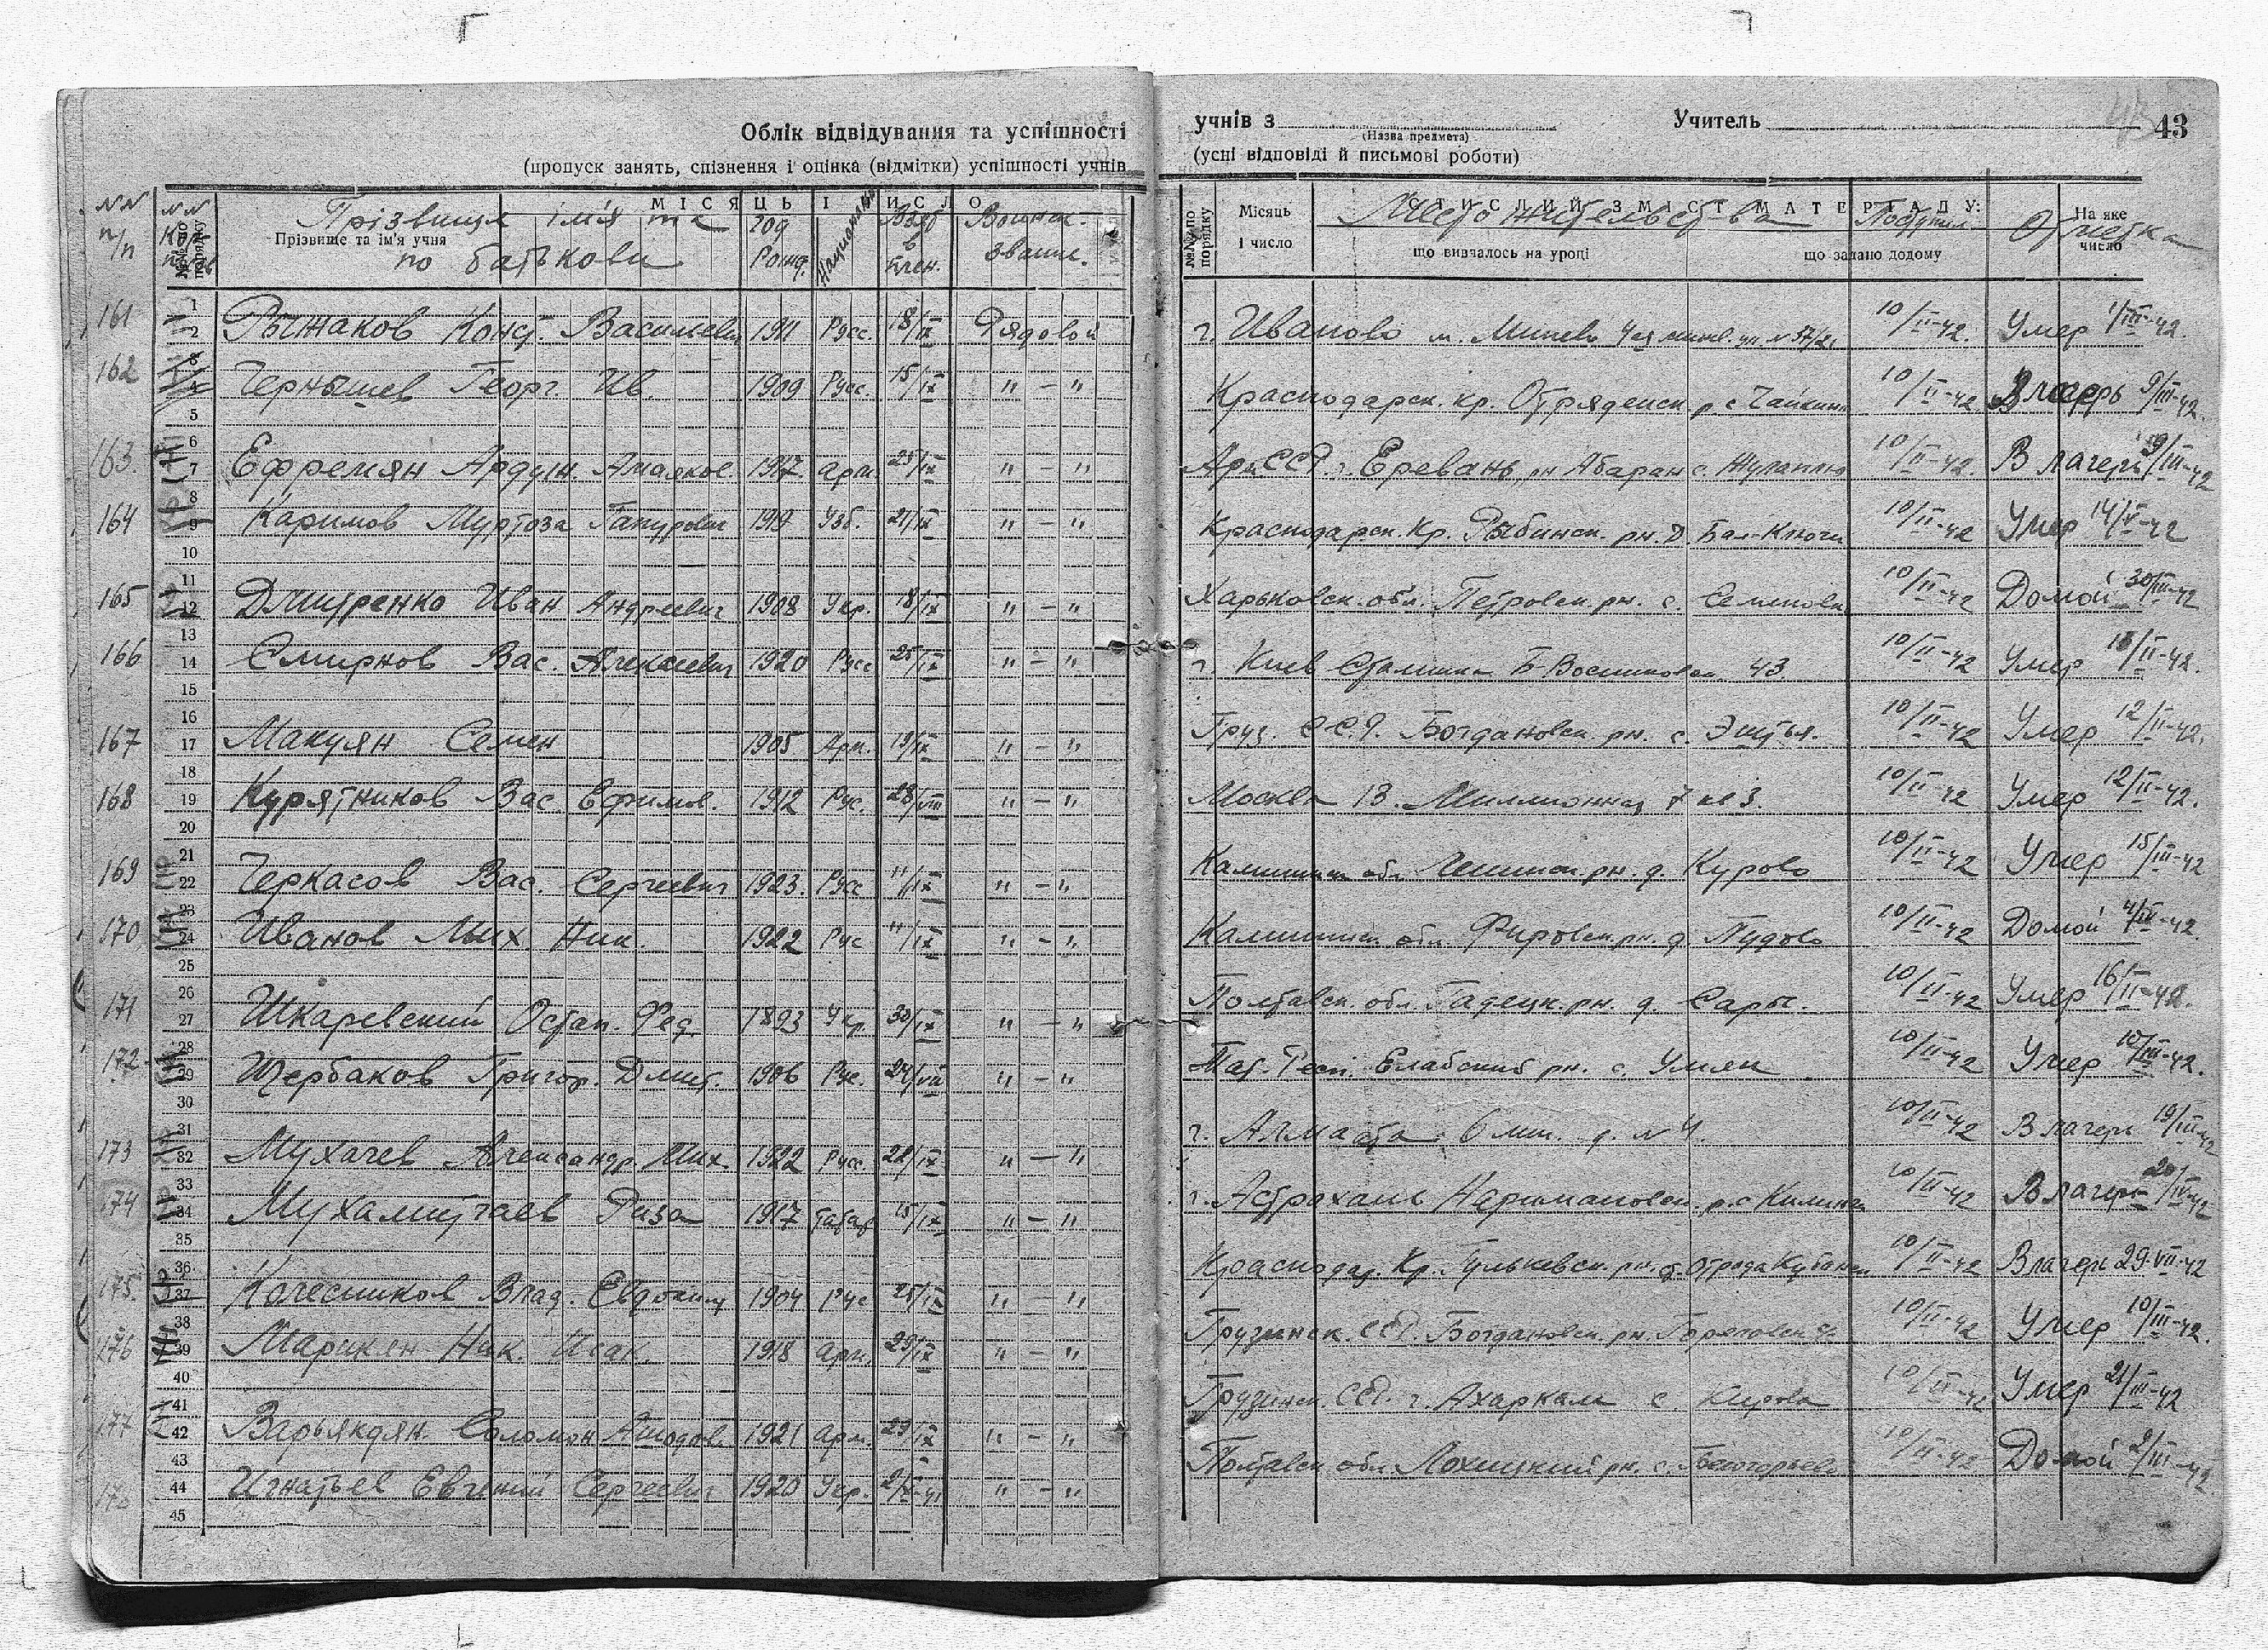 Облік відвідування та успішності
(пропуск занять, спізнення і оцінка (відмітки) успішності учнів
учнів з Учитель 43
(Назва предмета)
(усні відповіді й письмові роботи)
№№ п/п
№№ по порядку
Прізвище та ім'я учня
Прізвище ім'я та по батькови
МІСЯЦЬ І ЧИСЛО
год рожд.
Национальн.
Взят в плен.
Воинск. звание.
№№ по порядку
Місяць і число
СТИСЛИЙ ЗМІСТ МАТЕРІАЛУ:
Место жительства
що вивчалось на уроці
Поступил
що задано додому
На яке число
Отметка
161 Рыжаков Конст. Васильевич 1911 Русс. 18/IX Рядовой г. Иваново м. Минеево 10/II-42. Умер 1/III-42.
162 Чернышев Георг. Ив. 1909 Русс. 15/IX " – " Краснодарск. кр. Отрядненск р с Чайкина 10/II-42 В лагерь 9/III-42.
163. Ефремян Ардуш. Амаяков. 1917. арм. 25/IX " – " Арм. ССР. г. Еревань, рн Абаран с. 10/II-42. В лагерь 9/III-42
164 Каримов Муртоза 1919 Узб. 21/IX " – " Краснодарск. Кр. Рыбинск. рн. д. Бал-Ключи 10/II-42 Умер 14/V-42
165 Дмитренко Иван Андреевич 1908 Укр. 18/IX " – " Харьковск. обл. Петровск рн. с. Семеновк 10/II-42 Домой 30/III-42
166 Смирнов Вас. Алексеевич 1920 Русс 25/IX " – " г. Киев Сталинка Б Васильковск. 43 10/II-42 Умер 18/II-42.
167 Макуян Семен 1905 Арм. 19/IX " – " Груз. ССР. Богдановск. рн. с. Эштья. 10/II-42 Умер 12/II-42.
168 Курятников Вас. Ефимов. 1912 Рус. 28/VIII " – " Москва 13. Миллионная 7 кв 3. 10/II-42 Умер 12/II-42.
169 Черкасов Вас. Сергеевич 1923. Русс 11/IX " – " Калининск обл. Ленинск рн. д. Курово 10/II-42 Умер 15/III-42
170 Иванов Мих. Ник. 1922 Рус 11/IX " – " Калининск. обл. Фировск. рн. д Пудово 10/II-42 Домой 4/IV-42.
171 Шкаревский Остап. Фед. 1893 Укр. 30/IX " – " Полтавск. обл. Гадецк. рн. д. Сары. 10/II-42 Умер 16/II-42.
172 Щербаков Григор. Дмит. 1906 Рус. 24/VIII " – " Тат. Респ. Елабский рн. с. Умяк 10/II-42 Умер 10/III-42.
173 Мухачев Александр Мих. 1922 Русс. 22/IX " – " г. Алмаата 6 лин. д. № 4. 10/II-42 В лагерь 19/III-42
174 Мухамитаев Риза 1917 татар 15/IX " – " г. Астрахань Наримановск. р. с Килинчи 10/II-42 В лагерь 20/IV-42
175. Колесников Влад. Евдоким 1904 Рус 25/IX " – " Краснодар. Кр. Гулькевск. рн. с. Отрада Кубанск 10/II-42 В лагерь 29.VII-42
176 Марикян Ник. Исак. 1918 арм. 29/IX " – " Грузинск. ССР. Богдановск. рн. Гореловск с. 10/II-42 Умер 10/III-42.
177 Варьякдян. Соломон Ашодов. 1921 арм. 29/IX " – " Грузинск. ССР. г. Ахаркала с. Кирова 10/II-42 Умер 21/III-42
Игнатьев Евгений Сергеевич 1920 Укр. 2/X-41 " – " Полтавск обл. Лохицкий рн. с. 10/II-42 Домой 2/III-42